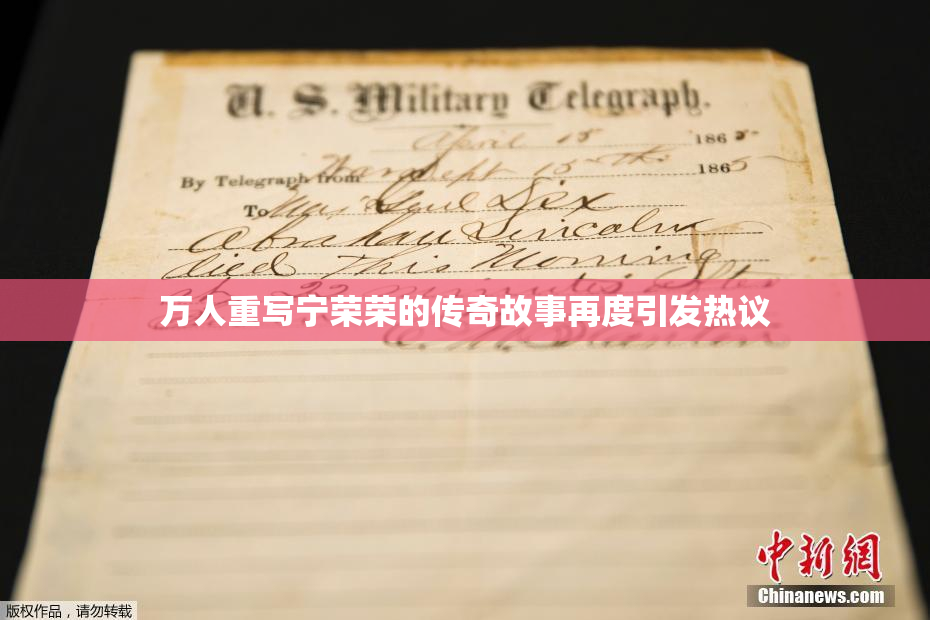 U. S. Military Telegraph.
April 15 1865
By Telegraph from War Dept 15th 1865
To Maj Genl Dix
Abraham Lincoln
died This Morning
at 22 minutes after
万人重写宁荣荣的传奇故事再度引发热议
E. M. Stanton
中新网
Chinanews.com
版权作品，请勿转载